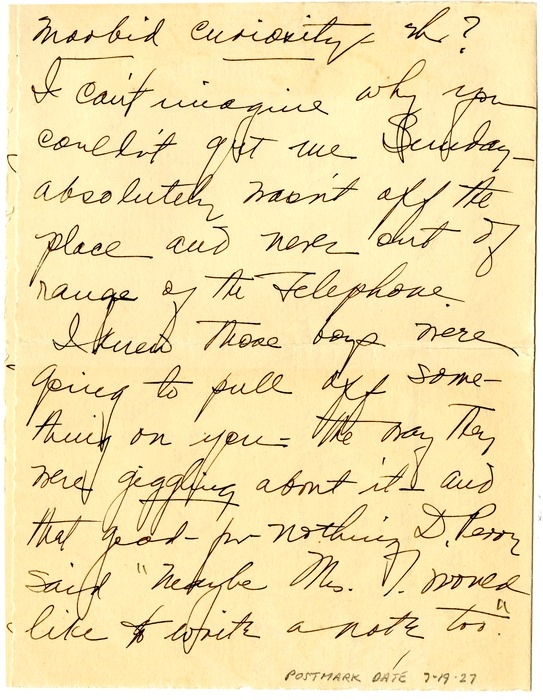 Morbid curiosity – eh?
I can't imagine why you
couldn't get me Sunday –
absolutely wasn't off the
place and never out of
range of the telephone
I knew those boys were
going to pull off some-
thing on you – the way they
were giggling about it – and
that good-for-nothing D. Perry
said "Maybe Mrs. T. would
like to write a note too."
POSTMARK DATE 7-19-27